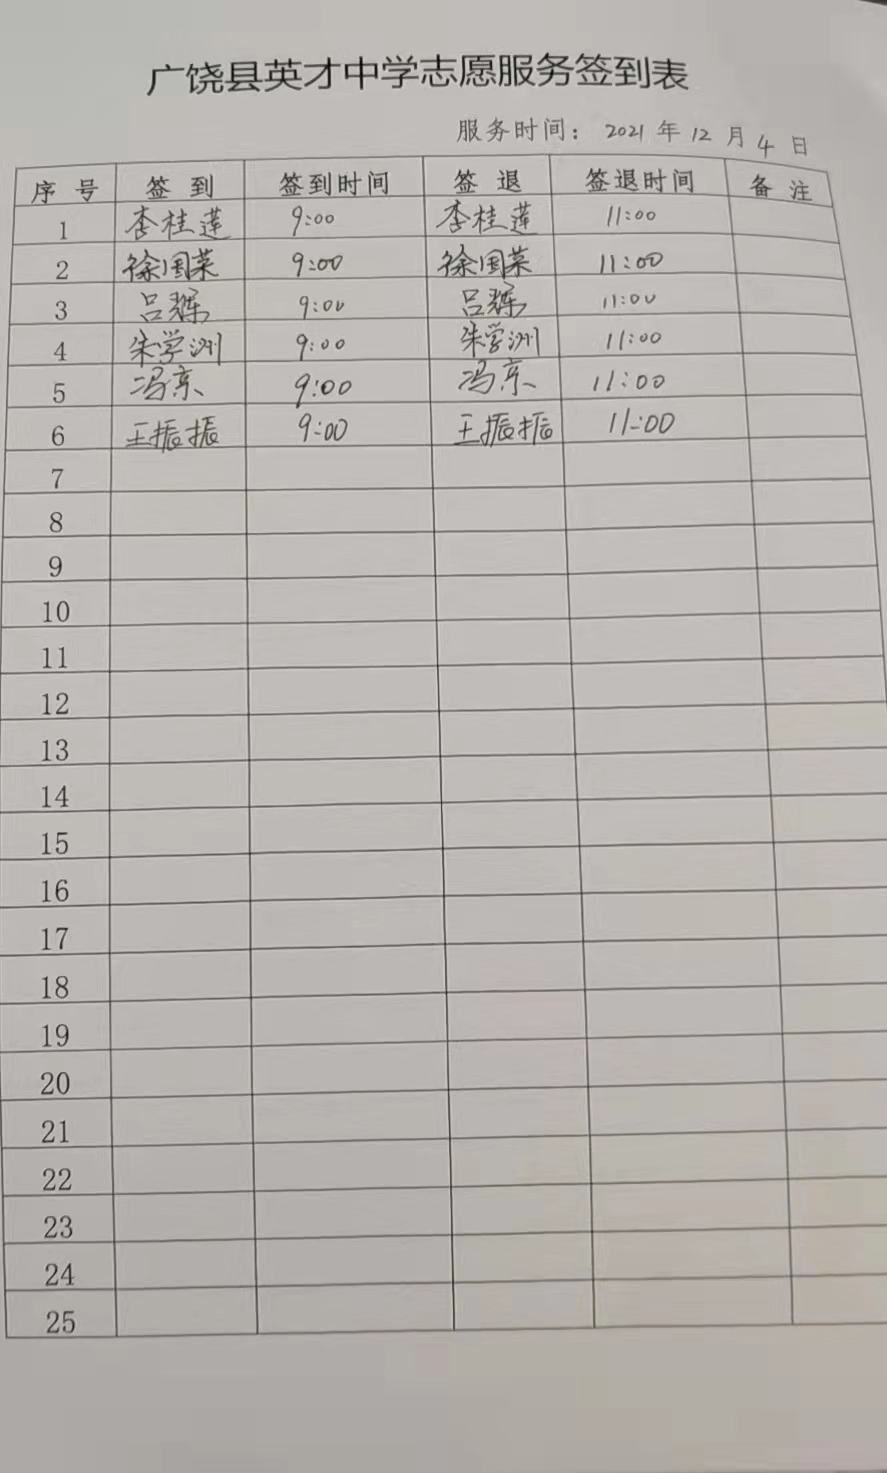 广饶县英才中学志愿服务签到表
服务时间: 2021 年 12 月 4 日
序 号 签 到 签到时间 签 退 签退时间 备 注
1 李桂莲 9:00 李桂莲 11:00
2 徐国菜 9:00 徐国菜 11:00
3 吕辉 9:00 吕辉 11:00
4 朱学洲 9:00 朱学洲 11:00
5 冯东 9:00 冯东 11:00
6 王振振 9:00 王振振 11:00
7
8
9
10
11
12
13
14
15
16
17
18
19
20
21
22
23
24
25